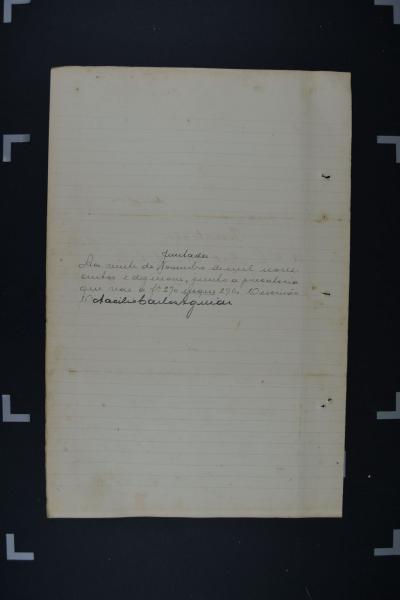 Juntada
Aos vinte de Novembro de mil nove
centos e dezenove, junto a precatoria
que vae a fs 270 segue 270. O escrivão
Nacilio Carlos Aguiar